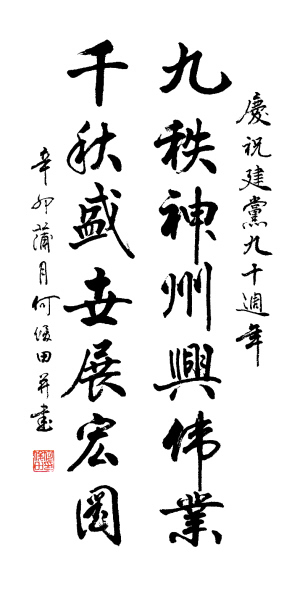 慶祝建黨九十週年
九秩神州興伟業
千秋盛世展宏圖
辛卯蒲月何俊田并書